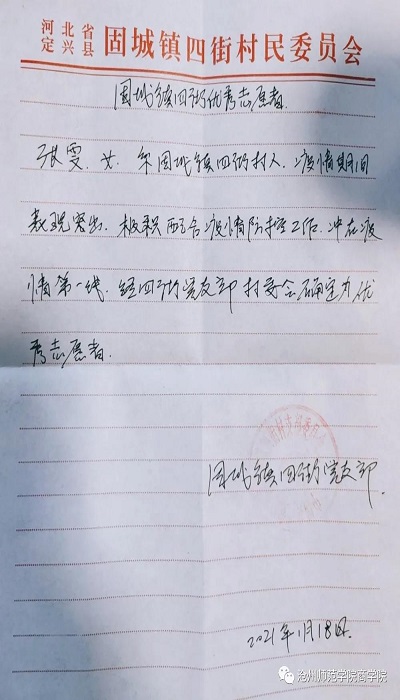 河北省
定兴县 固城镇四街村民委员会
固城镇四街优秀志愿者
张雯，女，系固城镇四街村人，疫情期间
表现突出，积极配合疫情防控工作，冲在疫
情第一线，经四街党支部村委会确定为优
秀志愿者。
固城镇四街党支部
2021年1月18日
沧州师范学院商学院